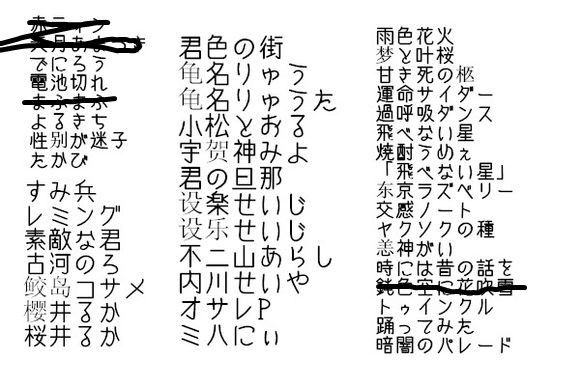 赤ティン
でにろう
電池切れ
まふまふ
よるきち
性別が迷子
たかび
すみ兵
レミング
素敵な君
古河のろ
鲛岛コサメ
樱井るか
桜井るか
君色の街
龟名りゅう
龟名りゅうた
小松とおる
宇贺神みよ
君の旦那
设楽せいじ
设乐せいじ
不二山あらし
内川せいや
オサレP
ミハにぃ
雨色花火
梦と叶桜
甘き死の柩
運命サイダー
過呼吸ダンス
飛べない星
焼酎うめぇ
「飛べない星」
东京ラズベリー
交感ノート
ヤクソクの種
恙神がい
時には昔の話を
鈍色空に花吹雪
トゥインクル
踊ってみた
暗闇のパレード